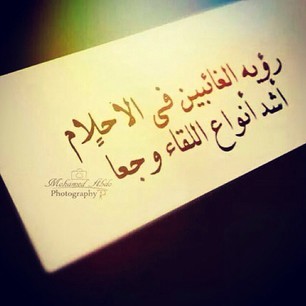 رؤيه الغائبين فى الأحلام
أشد أنواع اللقاء وجعا
Photography